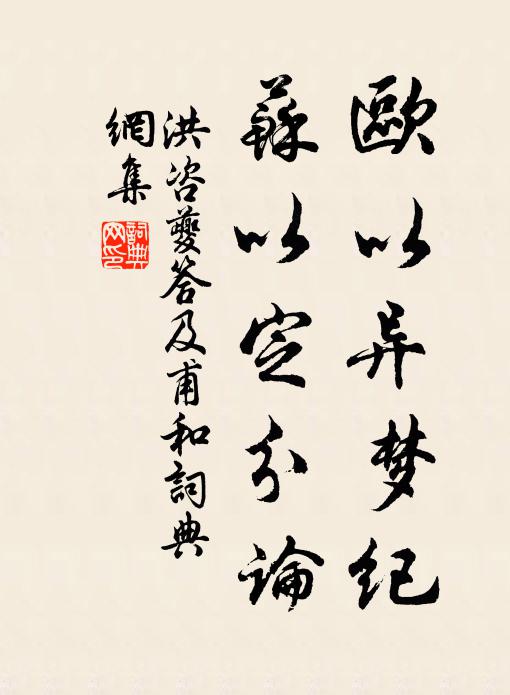 歐以异梦纪
蘇以定分論
洪咨夔答及甫和詞典
網集
詞典
网印